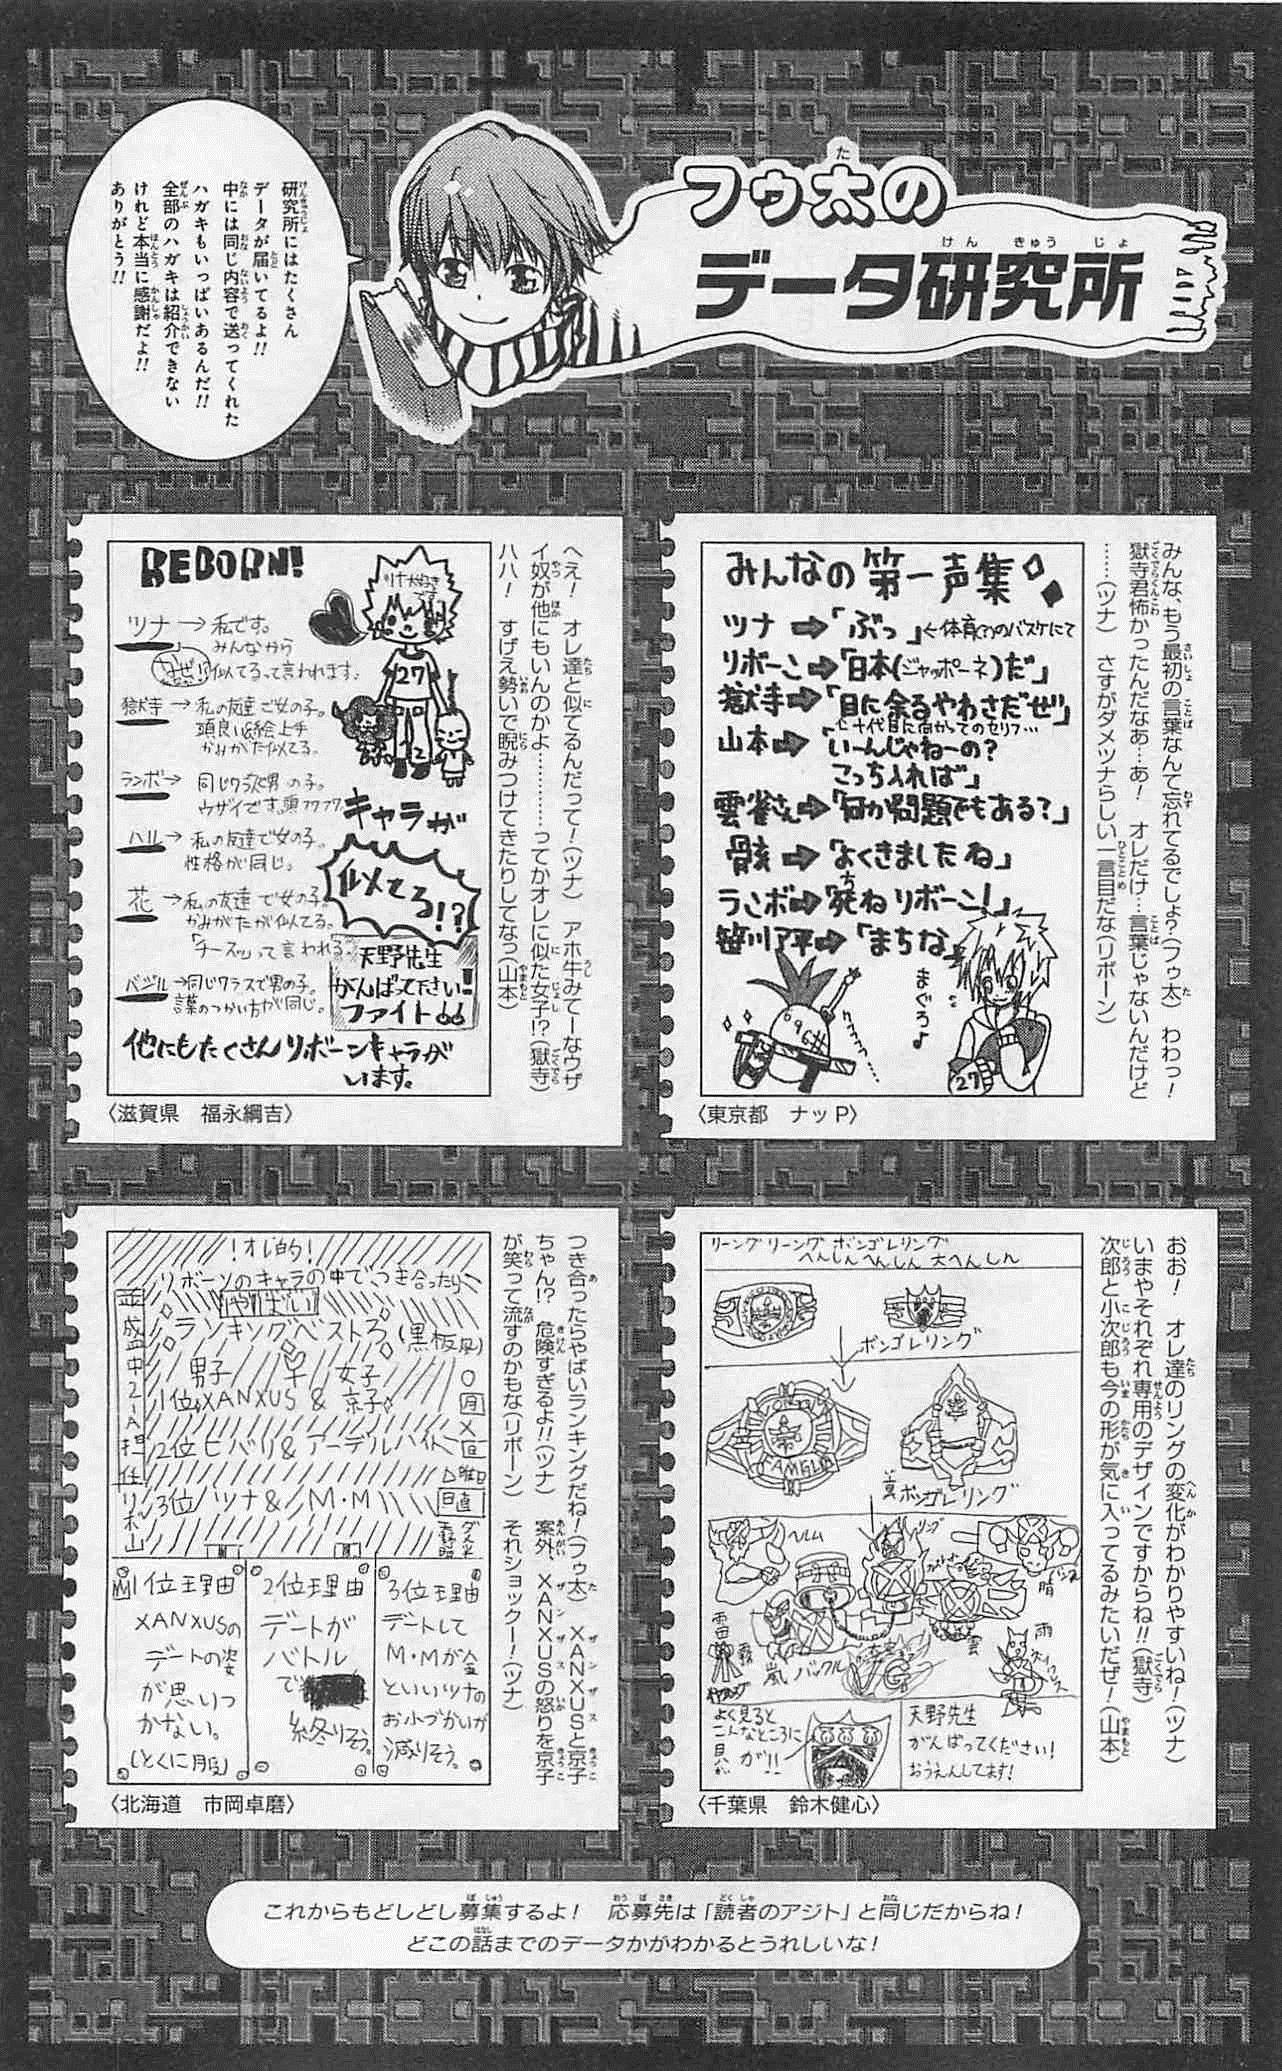 フゥ太の
データ研究所
研究所にはたくさん
データが届いてるよ!!
中には同じ内容で送ってくれた
ハガキもいっぱいあるんだ!!
全部のハガキは紹介できない
けれど本当に感謝だよ!!
ありがとう!!
みんな、もう最初の言葉なんて忘れてるでしょ?(フゥ太) わわっ!
獄寺君怖かったんだなあ…あ! オレだけ…言葉じゃないんだけど
……(ツナ) さすがダメツナらしい一言目だな(リボーン)
みんなの第一声集
ツナ→「ぶっ」←体育(?)のバスケにて
リボーン→「日本(ジャッポーネ)だ」
獄寺→「目に余るやわさだぜ」
十代目に向かってのセリフ…
山本→「いーんじゃねーの?
こっち入れば」
雲雀さん→「何か問題でもある?」
骸→「よくきましたね」
ランボ→「死ねリボーン!」
笹川了平→「まちな」
まぐろぉ
27
〈東京都 ナッP〉
へえ! オレ達と似てるんだって!(ツナ) アホ牛みてーなウザ
イ奴が他にもいんのかよ…………ってかオレに似た女子!?(獄寺)
ハハ! すげえ勢いで睨みつけてきたりしてなっ(山本)
REBORN!
27
ツナ→私です。
みんなから
なぜ!?似てるって言われます。
獄寺→私の友達で女の子。
頭良い&絵上手
かみがた似てる。
ランボ→同じクラスで男の子。
ウザイです。頭フワフワ。
ハル→私の友達で女の子。
性格が同じ。
花→私の友達で女の子。
かみがたが似てる。
「チースッ」って言われる。
バジル→同じクラスで男の子。
言葉のつかい方が同じ。
キャラが
似てる!?
天野先生
がんばって下さい!
ファイト
他にもたくさんリボーンキャラが
います。
〈滋賀県 福永綱吉〉
おお! オレ達のリングの変化がわかりやすいね!(ツナ)
いまやそれぞれ専用のデザインですからね!!(獄寺)
次郎と小次郎も今の形が気に入ってるみたいだぜ!(山本)
リーングリーングボンゴレリング
へんしんへんしん大へんしん
ボンゴレリング
真ボンゴレリング
ヘルム
リング
晴
雷
霧
嵐
バックル
雲
雨
VG
よく見ると
こんなところに
貝が!!
天野先生
がんばってください!
おうえんしてます!
〈千葉県 鈴木健心〉
つき合ったらやばいランキングだね!(フゥ太) XANXUSと京子
ちゃん!? 危険すぎるよ!!(ツナ) 案外、XANXUSの怒りを京子
が笑って流すのかもな(リボーン) それショックー!(ツナ)
!オレ的!
リボーンのキャラの中でつき合ったら
やばい
ランキングベスト3(黒板風)
男子 女子
1位 XANXUS & 京子
2位 ヒバリ&アーデルハイト
3位 ツナ&M・M
並盛中2-A担任リボ山
○月×日
日直
1位理由
XANXUSの
デートの姿
が思いつ
かない。
(とくに服)
2位理由
デートが
バトル
で
終りそう。
3位理由
デートして
M・Mが金
といいツナの
おこづかいが
減りそう。
〈北海道 市岡卓磨〉
これからもどしどし募集するよ! 応募先は「読者のアジト」と同じだからね!
どこの話までのデータかがわかるとうれしいな!